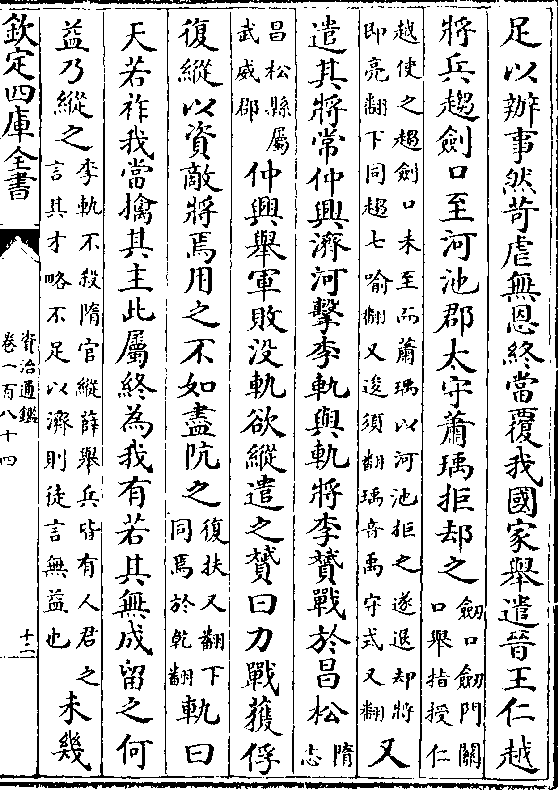 足以辦事然苛虐無恩終當覆我國家舉遣晉王仁越
將兵趨劍口至河池郡太守蕭瑀拒却之劒口劒門關口舉指授仁
越使之趨劍口未至而蕭瑀以河池拒之遂退却將即亮翻下同趨七喻翻又逡須翻瑀音禹守式又翻又
遣其將常仲興濟河擊李軌與軌將李贇戰於昌松隋志
昌松縣屬武威郡仲興舉軍敗没軌欲縱遣之贇曰力戰獲俘
復縱以資敵將焉用之不如盡阬之復扶又翻下同焉於乾翻軌曰
天若祚我當擒其主此屬終為我有若其無成留之何
益乃縱之李軌不殺隋官縱薛舉兵皆有人君之言其才略不足以濟則徒言無益也未幾
欽定四庫全書
資治通鑑
卷一百八十四
十二